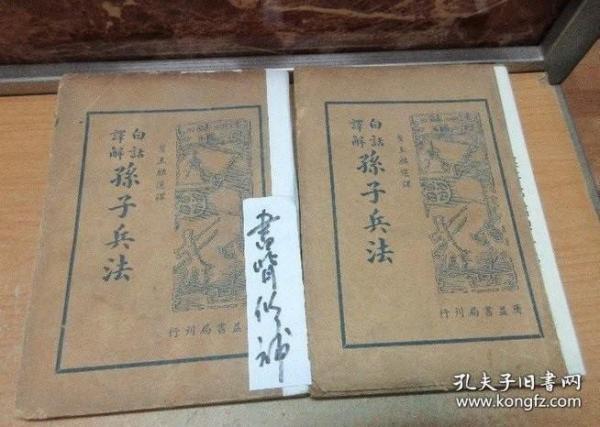 白話
譯解
孫子兵法
葉玉麟選譯
益書局刊行
書背修補
白話
譯解
孫子兵法
葉玉麟選譯
廣益書局刊行
孔夫子旧书网
www.kongfz.com